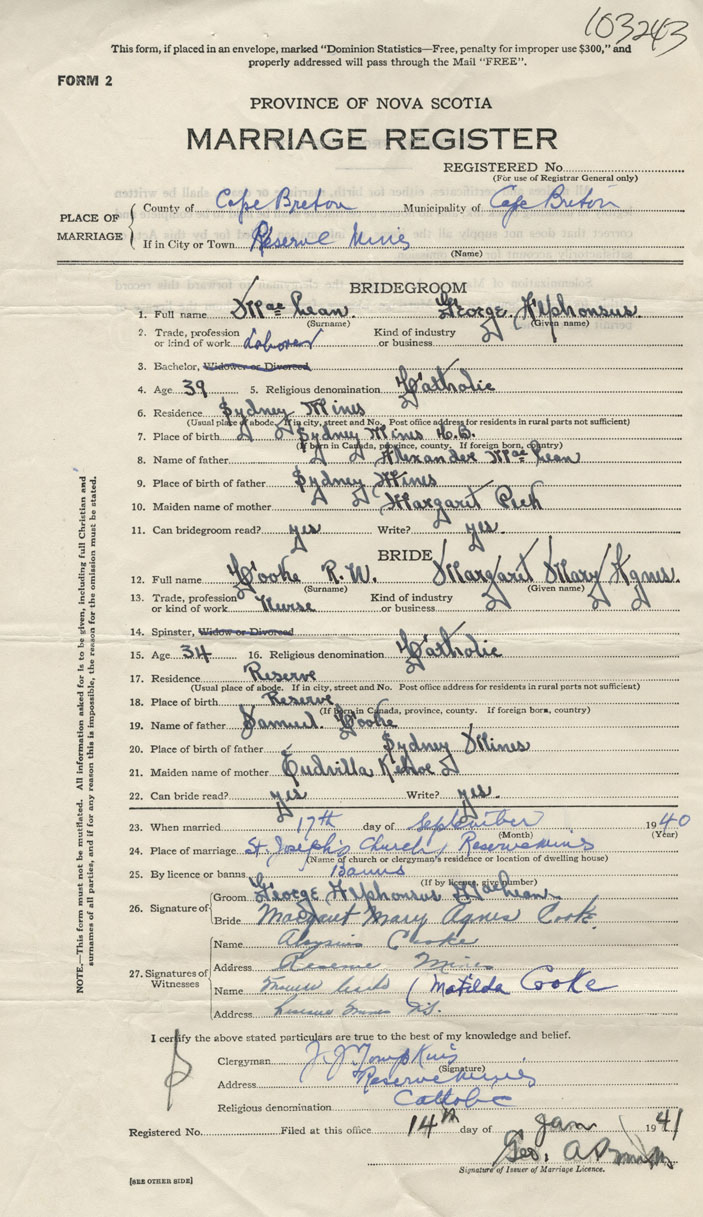 103243
This form, if placed in an envelope, marked "Dominion Statistics—Free, penalty for improper use $300," and
properly addressed will pass through the Mail "FREE".
FORM 2
PROVINCE OF NOVA SCOTIA
MARRIAGE REGISTER
REGISTERED No.
(For use of Registrar General only)
PLACE OF MARRIAGE
County of Cape Breton Municipality of Cape Breton
If in City or Town Reserve Mines
(Name)
BRIDEGROOM
1. Full name MacLean George Alphonsus
(Surname) (Given name)
2. Trade, profession or kind of work Laborer Kind of industry or business
3. Bachelor, Widower or Divorced
4. Age 39 5. Religious denomination Catholic
6. Residence Sydney Mines
(Usual place of abode. If in city, street and No. Post office address for residents in rural parts not sufficient)
7. Place of birth Sydney Mines C.B.
(If born in Canada, province, county. If foreign born, country)
8. Name of father Alexander MacLean
9. Place of birth of father Sydney Mines
10. Maiden name of mother Margaret
11. Can bridegroom read? yes Write? yes.
BRIDE
12. Full name Cooke R.N. Margaret Mary Agnes.
(Surname) (Given name)
13. Trade, profession or kind of work Nurse Kind of industry or business
14. Spinster, Widow or Divorced
15. Age 34 16. Religious denomination Catholic
17. Residence Reserve
(Usual place of abode. If in city, street and No. Post office address for residents in rural parts not sufficient)
18. Place of birth Reserve
(If born in Canada, province, county. If foreign born, country)
19. Name of father Samuel Cooke
20. Place of birth of father Sydney Mines
21. Maiden name of mother Kehoe
22. Can bride read? yes Write? yes.
23. When married 17th day of September 1940
(Month) (Year)
24. Place of marriage St. Joseph's Church, Reserve Mines
(Name of church or clergyman's residence or location of dwelling house)
25. By licence or banns Banns
(If by licence, give number)
26. Signature of
Groom George Alphonsus MacLean
Bride Margaret Mary Agnes Cooke.
27. Signatures of Witnesses
Name Aloysius Cooke
Address Reserve Mines
Name Matilda Cooke
Address Reserve Mines N.S.
I certify the above stated particulars are true to the best of my knowledge and belief.
Clergyman J. J. Tompkins
(Signature)
Address Reserve Mines
Religious denomination Catholic
Registered No. Filed at this office 14th day of Jan 1941
Geo. A
Signature of Issuer of Marriage Licence.
[SEE OTHER SIDE]
NOTE.—This form must not be mutilated. All information asked for is to be given, including full Christian and
surnames of all parties, and if for any reason this is impossible, the reason for the omission must be stated.